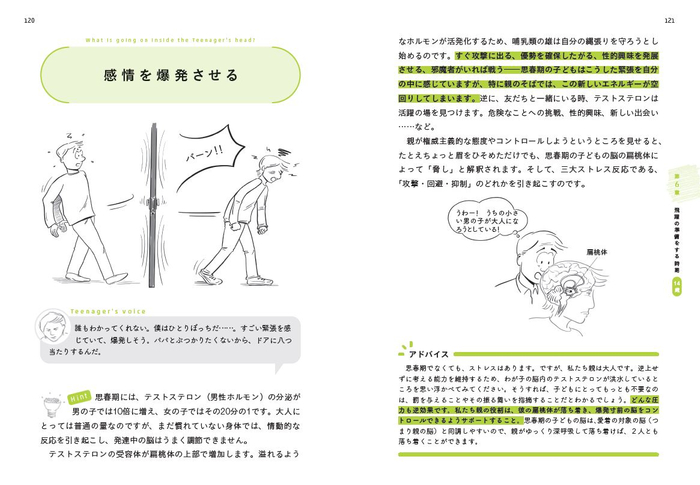 120
What is going on inside the Teenager's head?
感情を爆発させる
バーン!!
Teenager's voice
誰もわかってくれない。僕はひとりぼっちだ……。すごい緊張を感
じていて、爆発しそう。パパとぶつかりたくないから、ドアに八つ
当たりするんだ。
Hint
思春期には、テストステロン（男性ホルモン）の分泌が
男の子では10倍に増え、女の子ではその20分の1です。大人に
とっては普通の量なのですが、まだ慣れていない身体では、情動的な
反応を引き起こし、発達中の脳はうまく調節できません。
テストステロンの受容体が扁桃体の上部で増加します。溢れるよう
121
なホルモンが活発化するため、哺乳類の雄は自分の縄張りを守ろうとし
始めるのです。すぐ攻撃に出る、優勢を確保したがる、性的興味を発展
させる、邪魔者がいれば戦う――思春期の子どもはこうした緊張を自分
の中に感じていますが、特に親のそばでは、この新しいエネルギーが空
回りしてしまいます。逆に、友だちと一緒にいる時、テストステロンは
活躍の場を見つけます。危険なことへの挑戦、性的興味、新しい出会い
……など。
親が権威主義的な態度やコントロールしようというところを見せると、
たとえちょっと眉をひそめただけでも、思春期の子どもの脳の扁桃体に
よって「脅し」と解釈されます。そして、三大ストレス反応である、
「攻撃・回避・抑制」のどれかを引き起こすのです。
うわー！ うちの小さ
い男の子が大人にな
ろうとしている！
扁桃体
アドバイス
思春期でなくても、ストレスはあります。ですが、私たち親は大人です。逆上せ
ずに考える能力を維持するため、わが子の脳内のテストステロンが洪水していると
ころを思い浮かべてみてください。そうすれば、子どもにとってもっとも不要なの
は、罰を与えることやその振る舞いを指摘することだとわかるでしょう。どんな圧
力も逆効果です。私たち親の役割は、彼の扁桃体が落ち着き、爆発寸前の脳をコン
トロールできるようサポートすること。思春期の子どもの脳は、愛着の対象の脳（つ
まり親の脳）と同調しやすいので、親がゆっくり深呼吸して落ち着けば、２人とも
落ち着くことができます。
第6章
飛躍の準備をする時期
14歳